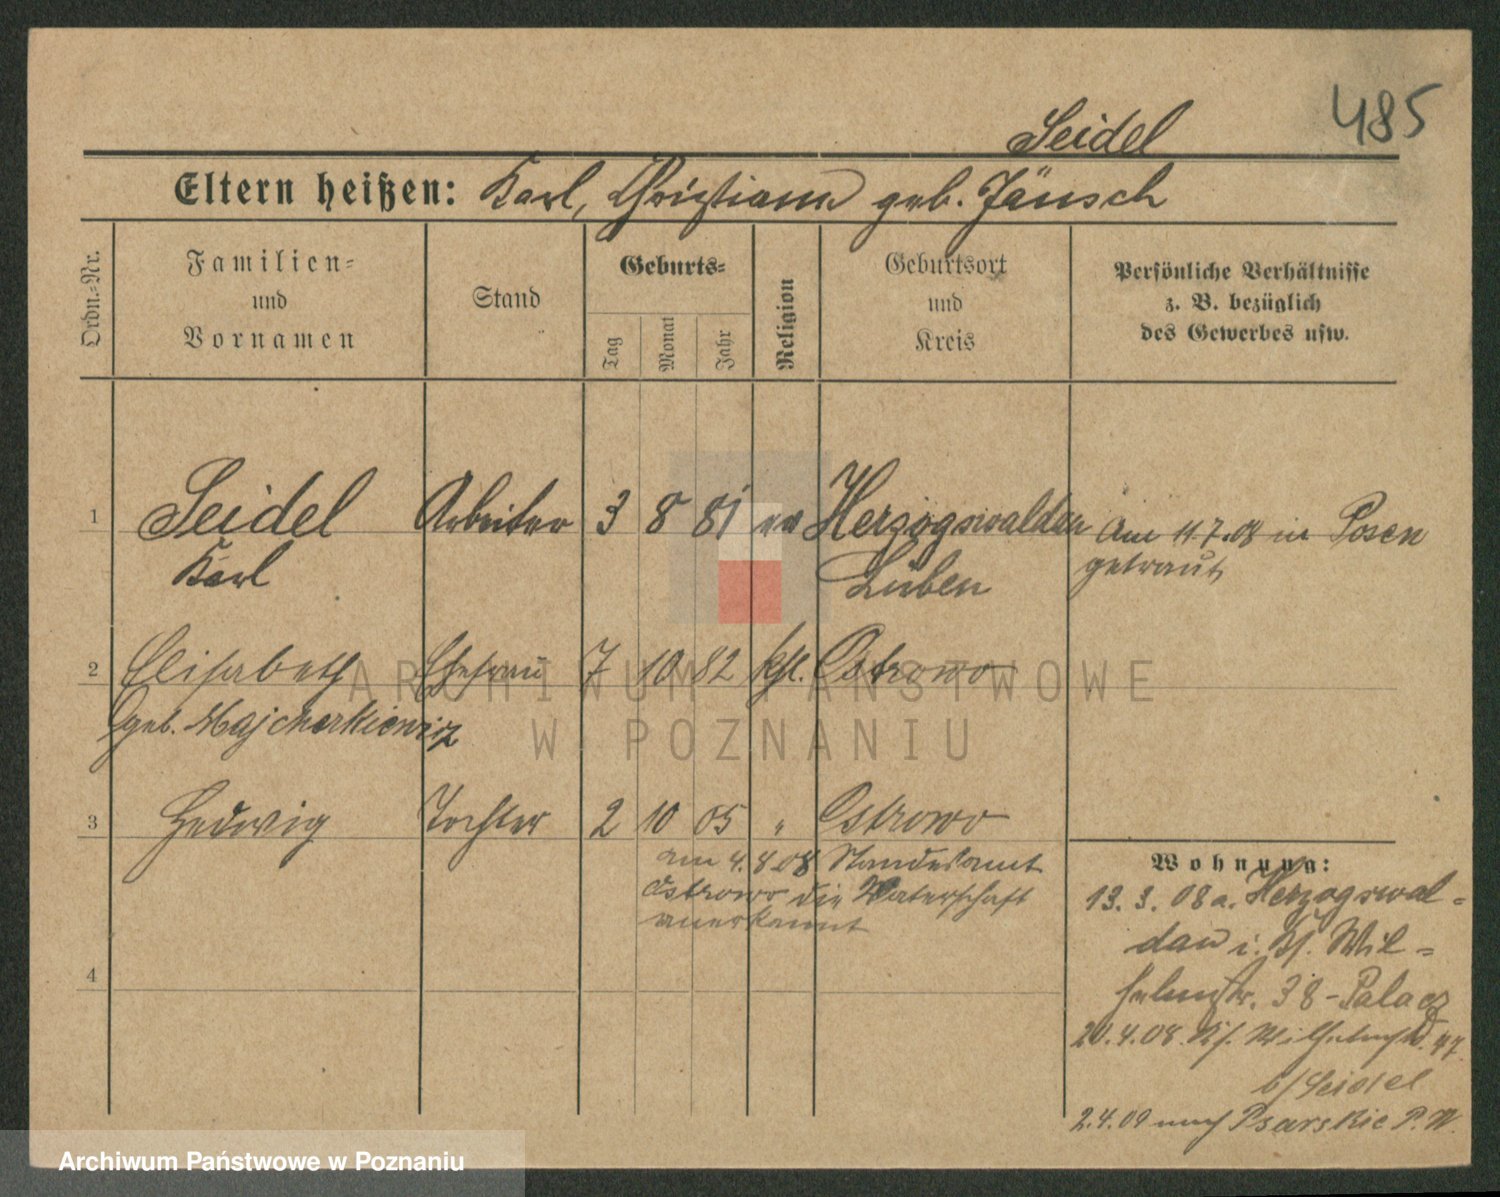 485
Seidel
Eltern heißen: Karl, Christiane geb. Jänsch
Ordn.-Nr.
Familien-
und
Vornamen
Stand
Geburts-
Tag
Monat
Jahr
Religion
Geburtsort
und
Kreis
Persönliche Verhältnisse
z. B. bezüglich
des Gewerbes usw.
1 Seidel Arbeiter 3 8 81 ev Herzogswaldau Am 11.7.08 in Posen
Karl Lüben getraut
2 Elisabeth Ehefrau 7 10 82 kth. Ostrowo
geb. Majcherkiewicz
3 Hedwig Tochter 2 10 05 " Ostrowo
am 4.8.08 Standesamt
Ostrowo die Vaterschaft
anerkannt
4
Wohnung:
13.3.08 a. Herzogswal-
dau i. Wil-
helmstr. 38 - Palacz
20.4.08. Wilhelmstr. 47.
b/Seidel
2.4.09 nach Psarskie P. W.
ARCHIWUM PAŃSTWOWE
W POZNANIU
Archiwum Państwowe w Poznaniu